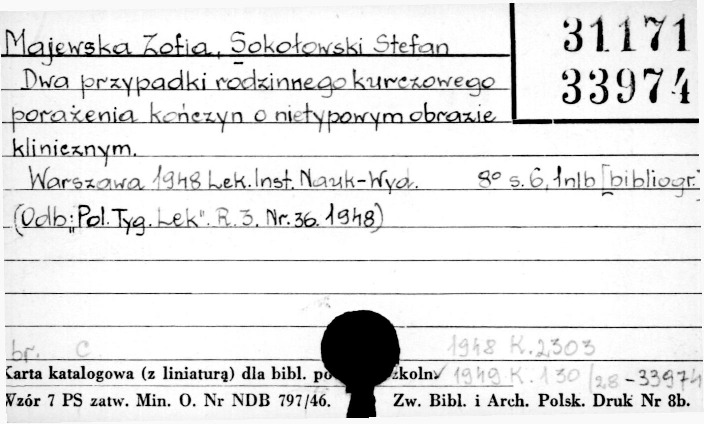 31171
33974
Majewska Zofia, Sokołowski Stefan
Dwa przypadki rodzinnego kurczowego
porażenia kończyn o nietypowym obrazie
klinicznym.
Warszawa 1948 Lek. Inst. Nauk-Wyd. 8° s. 6, 1nlb [bibliogr.]
(Odb: "Pol. Tyg. Lek". R. 3. Nr. 36. 1948)
br. C 1948 K. 2303
Karta katalogowa (z liniaturą) dla bibl. 1949 K. 130/28-33974
Wzór 7 PS zatw. Min. O. Nr NDB 797/46. Zw. Bibl. i Arch. Polsk. Druk Nr 8b.